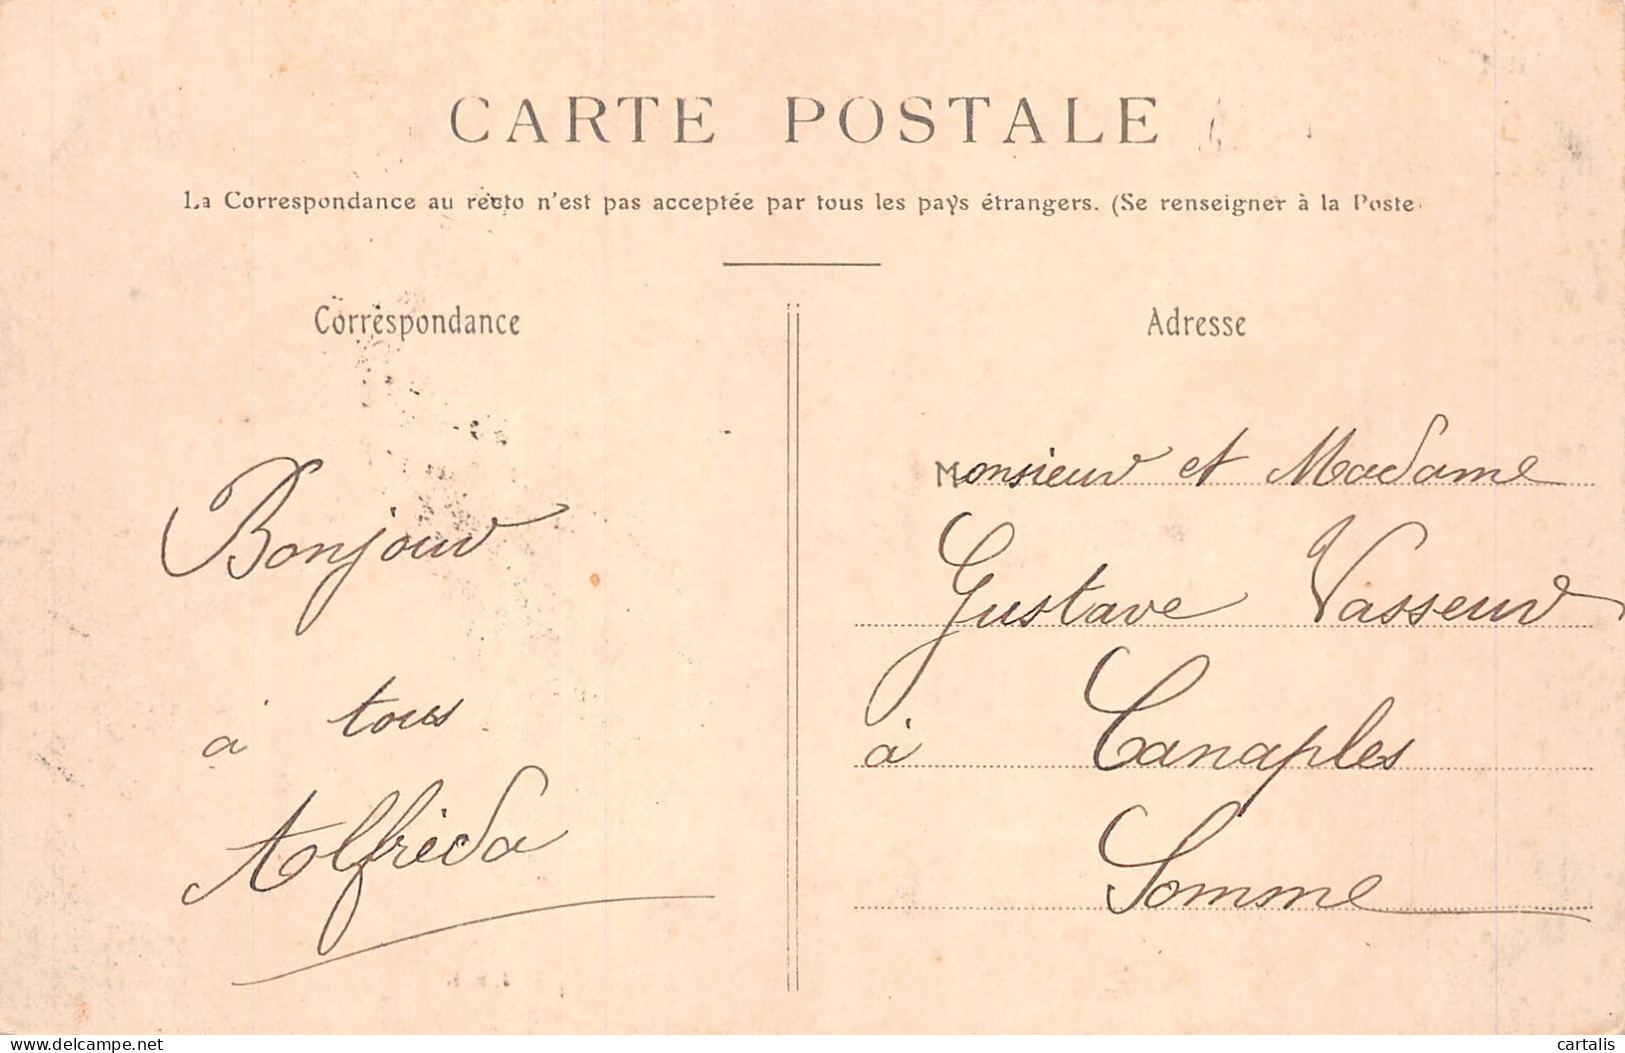 CARTE POSTALE
La Correspondance au recto n'est pas acceptée par tous les pays étrangers. (Se renseigner à la Poste
Correspondance
Bonjour
à tous
Alfréda
Adresse
Monsieur et Madame
Gustave Vasseur
à Canaples
Somme
delcampe.net
cartalis